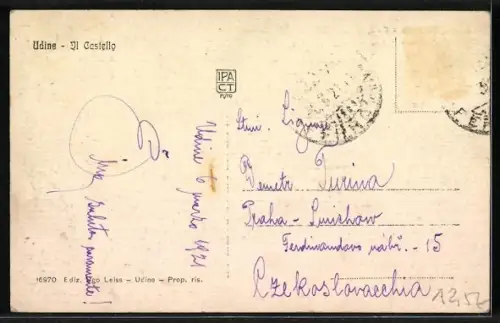 Udine - Il Castello
IPA
CT
Udine 6 marzo 1921
Stim. Signore
Demetr Turina
Praha - Smichow
Ferdinandovo nábř. - 15
Czekoslovacchia
12,50
16970 Ediz. Ugo Leiss - Udine - Prop. ris.